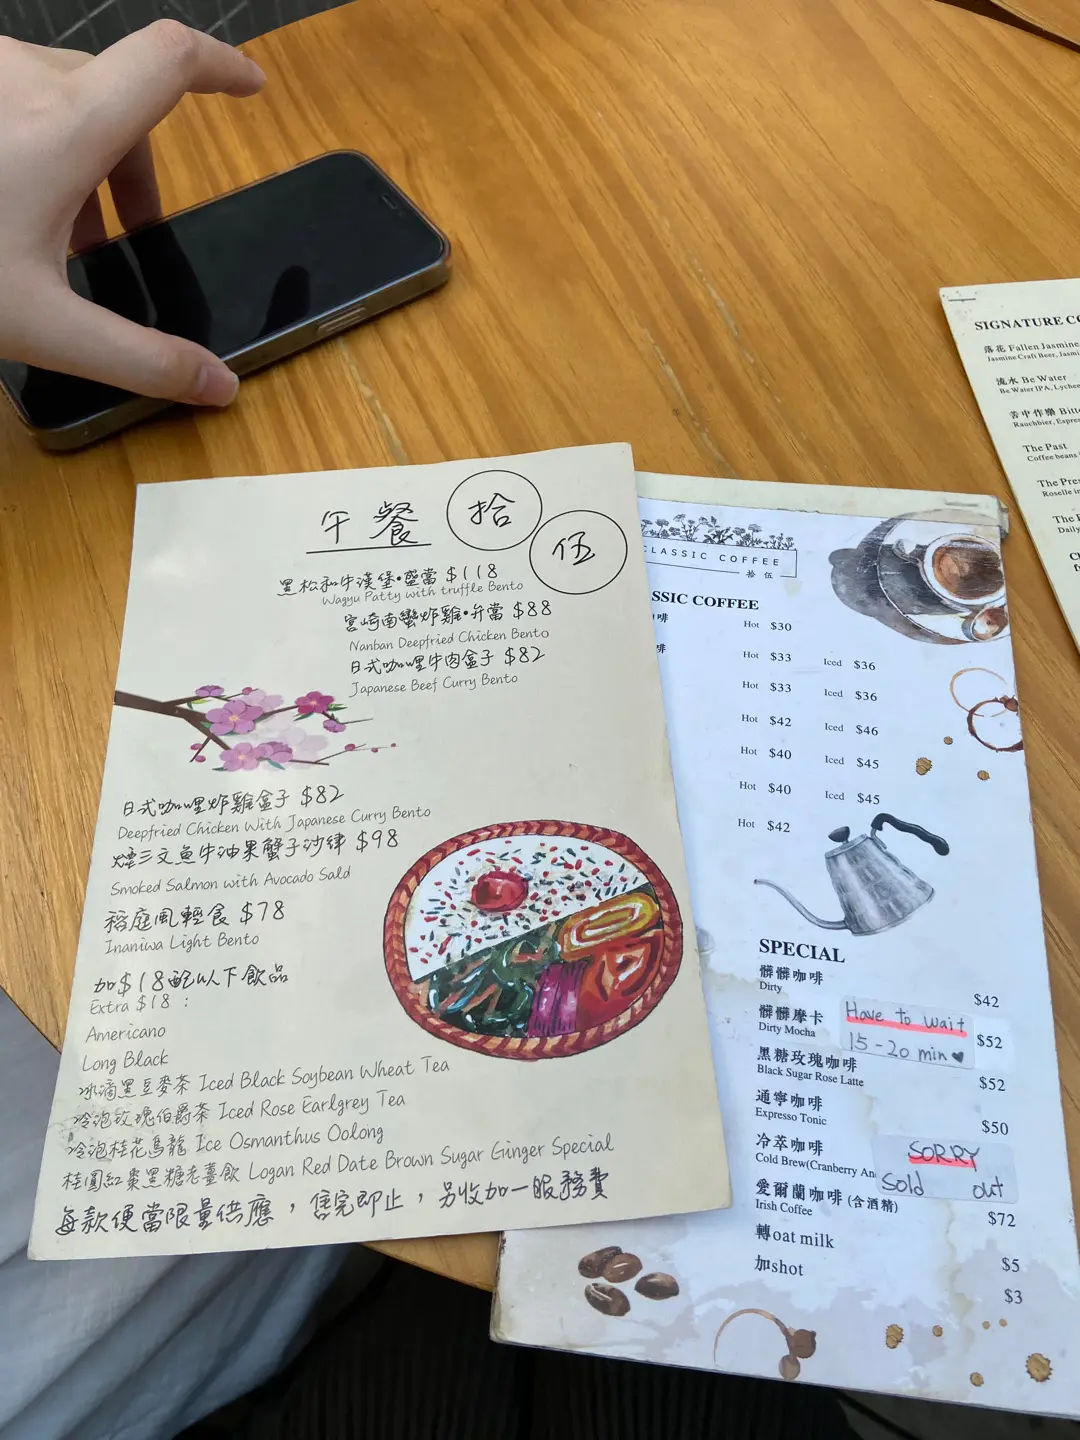 午餐
拾
伍
黑松和牛漢堡•盛當 $118
Wagyu Patty with truffle Bento
宮崎南蠻炸雞•弁當 $88
Nanban Deepfried Chicken Bento
日式咖喱牛肉盒子 $82
Japanese Beef Curry Bento
日式咖喱炸雞盒子 $82
Deepfried Chicken With Japanese Curry Bento
煙三文魚牛油果蟹子沙律 $98
Smoked Salmon with Avocado Sald
稻庭風輕食 $78
Inaniwa Light Bento
加$18配以下飲品
Extra $18 :
Americano
Long Black
冰滴黑豆麥茶 Iced Black Soybean Wheat Tea
冷泡玫瑰伯爵茶 Iced Rose Earlgrey Tea
冷泡桂花烏龍 Ice Osmanthus Oolong
桂圓紅棗黑糖老薑飲 Logan Red Date Brown Sugar Ginger Special
每款便當限量供應，售完即止，另收加一服務費
CLASSIC COFFEE
拾 伍
SSIC COFFEE
咖啡
Hot $30
啡
Hot $33 Iced $36
Hot $33 Iced $36
Hot $42 Iced $46
Hot $40 Iced $45
Hot $40 Iced $45
Hot $42
SPECIAL
髒髒咖啡
Dirty
$42
髒髒摩卡
Dirty Mocha
$52
Have to wait
15-20 min♥
黑糖玫瑰咖啡
Black Sugar Rose Latte
$52
通寧咖啡
Expresso Tonic
$50
冷萃咖啡
Cold Brew(Cranberry An
SORRY
Sold out
愛爾蘭咖啡 (含酒精)
Irish Coffee
$72
轉oat milk
$5
加shot
$3
SIGNATURE CO
落花 Fallen Jasmine
Jasmine Craft Beer, Jasmi
流水 Be Water
Be Water IPA, Lychee
苦中作樂 Bitte
Rauchbier, Espres
The Past
Coffee beans
The Pres
Roselle in
The F
Daily